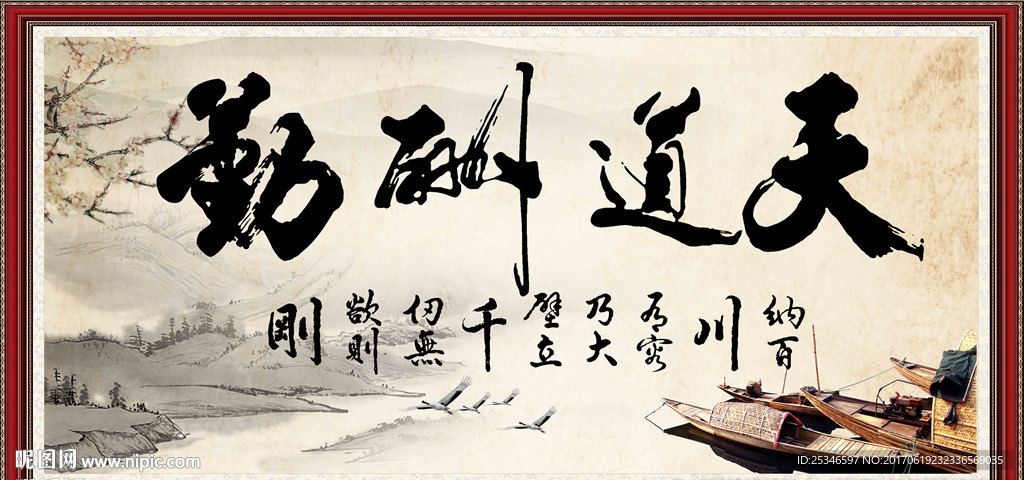 天道酬勤
納百川有容乃大壁立千仞無欲則剛
昵图网 www.nipic.com
ID:25346597 NO:20170619232336569035